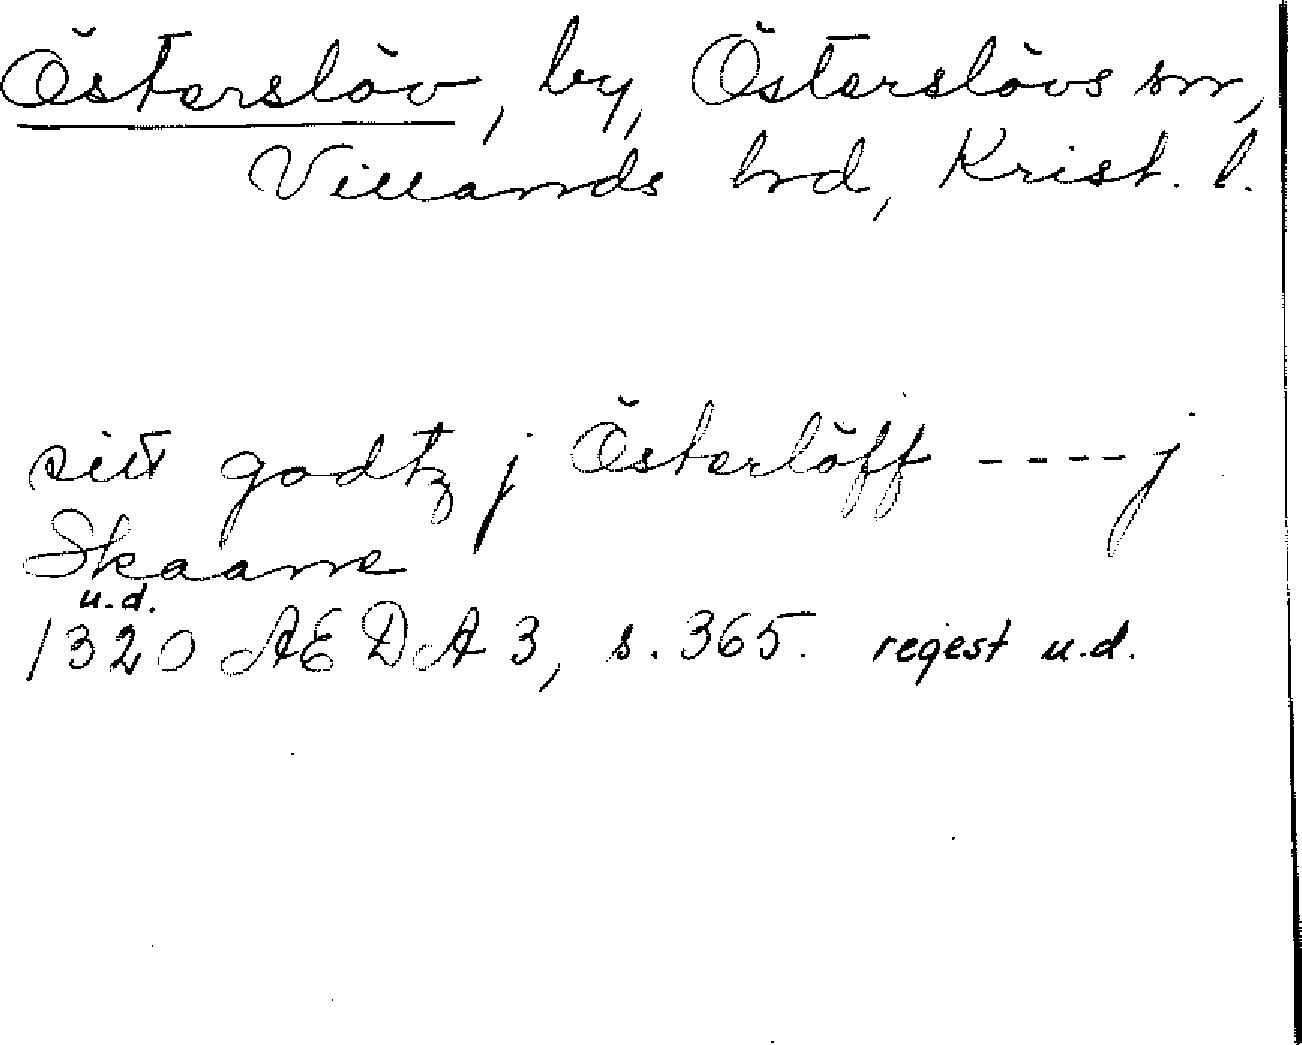 Österslöv, by, Österslövs sn,
Villands hd, Krist. l.
sitt godtz j Österlöff ---- j
Skaane
u.d.
1320 AEDA 3, s. 365. regest u.d.